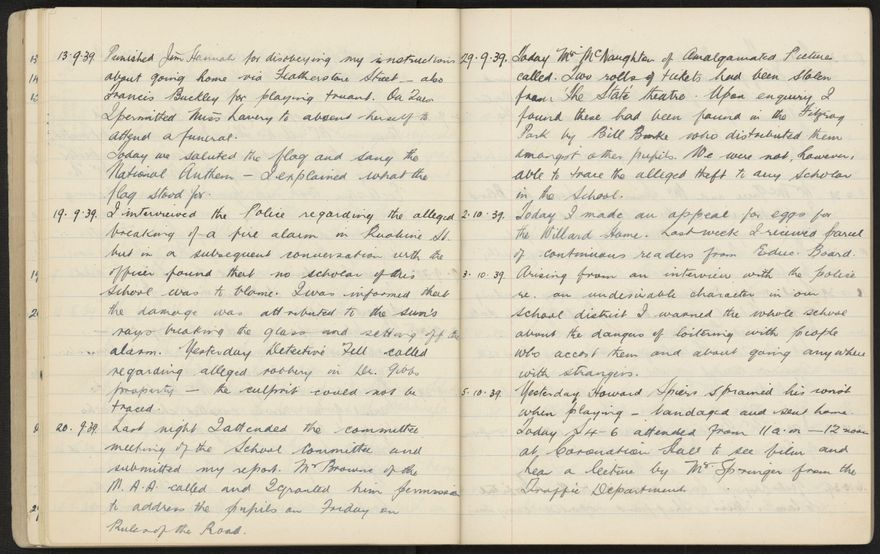 13·9·39. Punished Jim Hannah for disobeying my instructions
about going home via Featherstone Street — also
Francis Buckley for playing truant. On Tues
I permitted Miss Lavery to absent herself to
attend a funeral.
Today we saluted the flag and sang the
National Anthem — I explained what the
flag stood for.
19·9·39. I interviewed the Police regarding the alleged
breaking of a fire alarm in Ruahine St.
but in a subsequent conversation with the
officer found that no scholar of this
school was to blame. I was informed that
the damage was attributed to the sun's
rays breaking the glass and setting off the
alarm. Yesterday Detective Fell called
regarding alleged robbery in Dr. Gibbs
property — the culprit could not be
traced.
20·9·39. Last night I attended the committee
meeting of the School Committee and
submitted my report. Mr Browne of the
M.A.A called and I granted him permission
to address the pupils on Friday on
Rules of the Road.
29·9·39. Today Mr McNaughton of Amalgamated Pictures
called. Two rolls of tickets had been stolen
from 'The State' theatre. Upon enquiry I
found these had been found in the Fitzroy
Park by Bill Burke who distributed them
amongst other pupils. We were not, however,
able to trace the alleged theft to any scholar
in the School.
2·10·39. Today I made an appeal for eggs for
the Willard Home. Last week I received parcel
of continuous readers from Educ. Board.
3·10·39. Arising from an interview with the police
re. an undesirable character in our
school district I warned the whole school
about the dangers of loitering with people
who accost them and about going anywhere
with strangers.
5·10·39. Yesterday Howard Spiers sprained his wrist
when playing — bandaged and sent home.
Today 4-6 attended from 11 a.m — 12 noon
at Coronation Hall to see film and
hear a lecture by Mr Springer from the
Traffic Department.